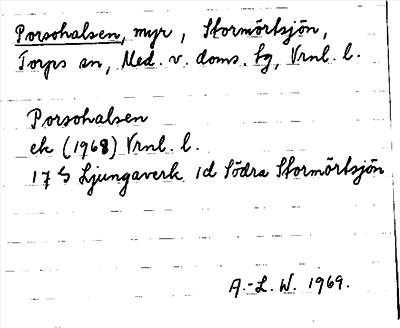 Porsohalsen, myr, Stormörtsjön,
Torps sn, Med. v. doms. tg, Vrnl. l.
Porsohalsen
ek (1968) Vrnl. l.
17 G Ljungaverk 1d Södra Stormörtsjön
A.-L. W. 1969.